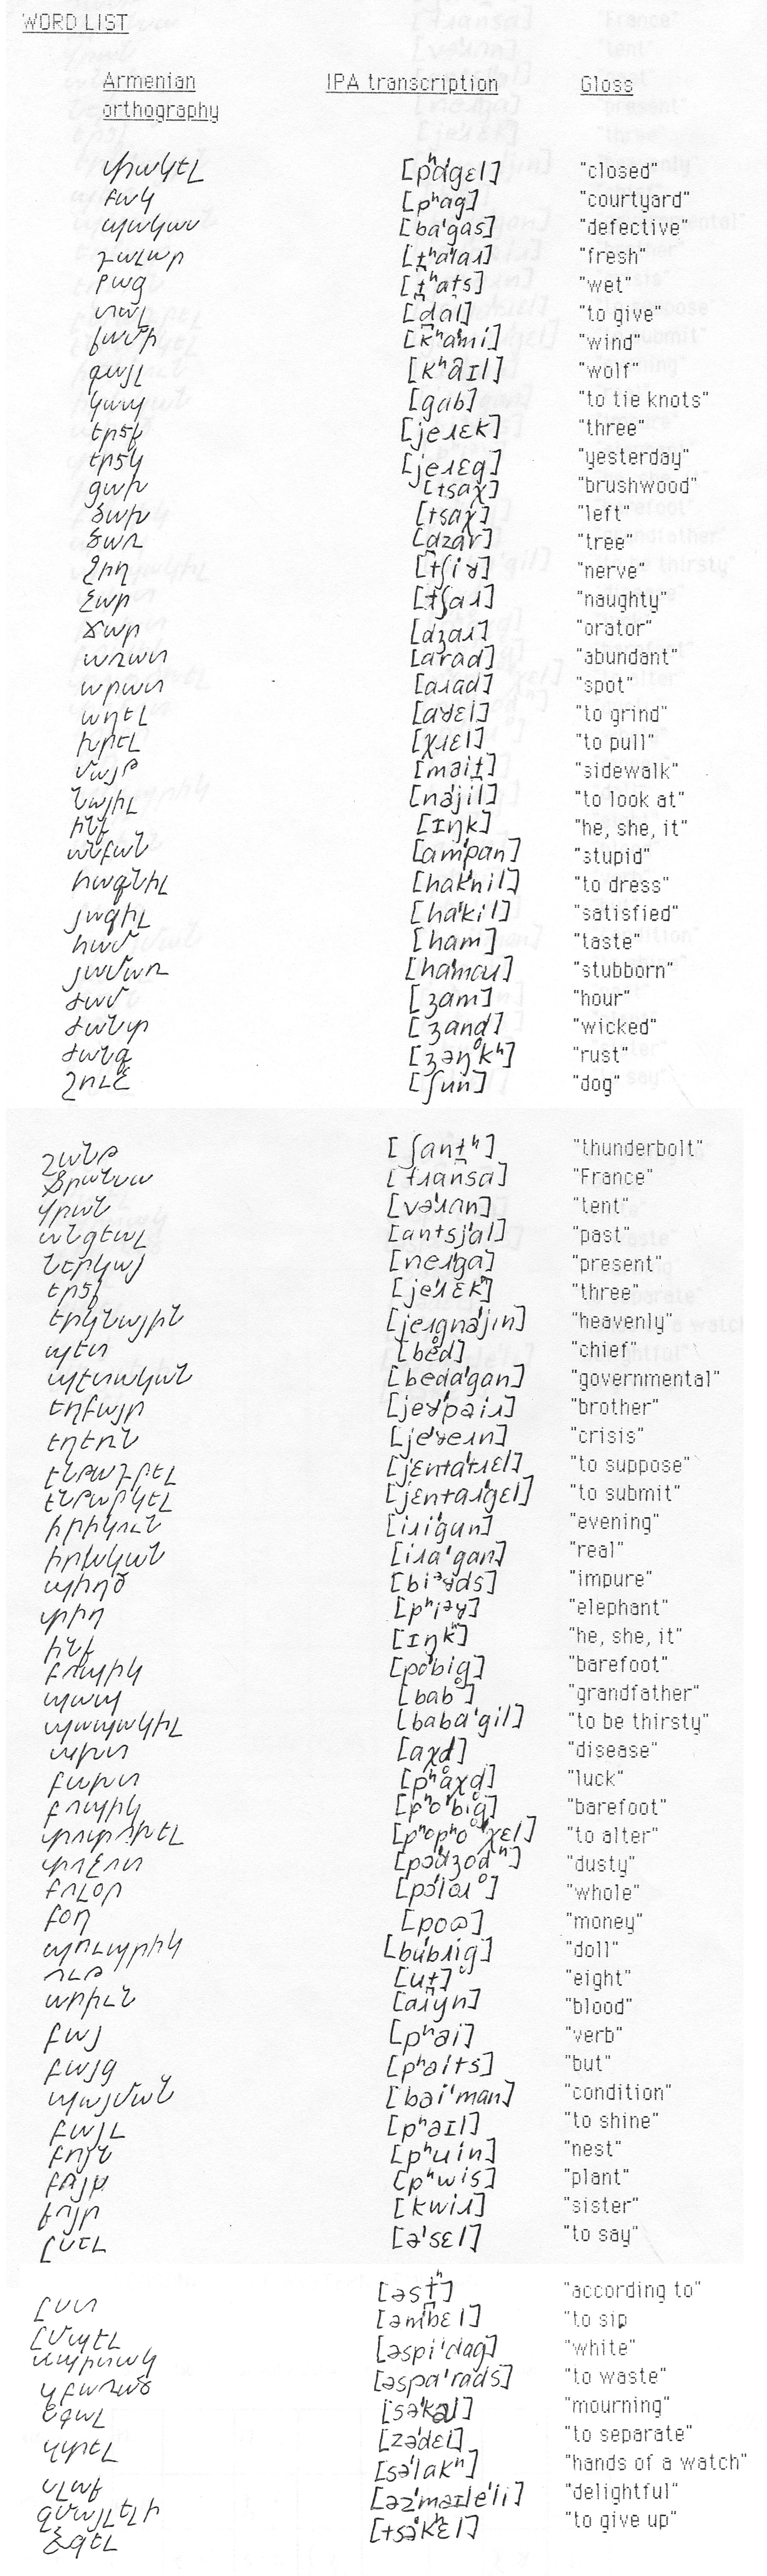 WORD LIST
Armenian orthography IPA transcription Gloss
փակել [pʰaˈgɛl] "closed"
բակ [pʰag] "courtyard"
պակաս [baˈgas] "defective"
դալար [t̪ʰaˈlaɹ] "fresh"
թաց [t̪ʰat̪s] "wet"
տալ [d̪al] "to give"
քամի [kʰaˈmi] "wind"
գայլ [kʰəɪl] "wolf"
կապ [gab] "to tie knots"
երեք [jeɹɛk] "three"
երեկ [jeɹɛg] "yesterday"
ցախ [tsaχ] "brushwood"
ձախ [tsaχ] "left"
ծառ [dzar] "tree"
ջիղ [tʃiɣ] "nerve"
չար [tʃaɹ] "naughty"
ճար [dʒaɹ] "orator"
առատ [arad] "abundant"
արատ [aɹad] "spot"
աղել [aɣɛl] "to grind"
խրել [χɹɛl] "to pull"
մայթ [məit̪] "sidewalk"
նայիլ [naˈjil] "to look at"
ինք [ɪŋk] "he, she, it"
անբան [amˈpan] "stupid"
հագնիլ [hakˈnil] "to dress"
յագիլ [haˈkil] "satisfied"
համ [ham] "taste"
յամառ "stubborn"
ժամ [ʒam] "hour"
ժանտ [ʒand] "wicked"
ժանգ [ʒəŋkʰ] "rust"
շուն [ʃun] "dog"
շանթ [ʃant̪ʰ] "thunderbolt"
Ֆրանսա [fɹansa] "France"
վրան [vəˈɹan] "tent"
անցեալ [antsjal] "past"
ներկայ [neɹˈga] "present"
երեք [jeˈɹɛkʰ] "three"
երկնային [jeɹgnaˈjɪn] "heavenly"
պետ [bed̥] "chief"
պետական [bedaˈgan] "governmental"
եղբայր [jeɣˈpəiɹ] "brother"
եղեռն [jeˈɣeɹn] "crisis"
ենթադրել [jɛntaˈtɹɛl] "to suppose"
ենթարկել [jɛntaɹˈgɛl] "to submit"
իրիկուն [iɹiˈgun] "evening"
իրական [iɹaˈgan] "real"
պիղծ [biᵊɣds] "impure"
փիղ [pʰiᵊɣ] "elephant"
ինք [ɪŋkʰ] "he, she, it"
բոպիկ [poˈbig] "barefoot"
պապ [bab̥] "grandfather"
պապակիլ [babaˈgil] "to be thirsty"
ախտ [aχd̥] "disease"
բախտ [pʰaχd̥] "luck"
բոպիկ [pʰoˈbig̥] "barefoot"
փոփոխել [pʰopʰoˈχɛl] "to alter"
փոշոտ "dusty"
բոլոր "whole"
փող "money"
պուպրիկ [buˈbɹig] "doll"
ութ [ut̪] "eight"
արիւն [aɹˈyn] "blood"
բայ [pʰəi] "verb"
բայց [pʰəits] "but"
պայման [bəiˈman] "condition"
փայլ [pʰəɪl] "to shine"
բոյն [pʰuin] "nest"
բոյս [pʰwis] "plant"
քոյր [kwiɹ] "sister"
ըսել [əˈsɛl] "to say"
ըստ [əst̪ʰ] "according to"
ըմպել [əmˈbɛl] "to sip
սպիտակ [əspiˈdag] "white"
սպառած [əspaˈrads] "to waste"
սգալ [səˈkal] "mourning"
զտել [zəˈdɛl] "to separate"
սլաք [səˈlakʰ] "hands of a watch"
զմայլելի [əzˈməɪleˈli] "delightful"
ձգել [tsəˈkʰɛl] "to give up"